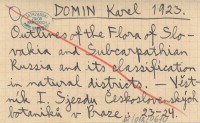 DOMIN Karel 1923.
Outlines of the Flora of Slo-
vakia and Subcarpathian
Russia and its classification
in natural districts. — Věst-
ník I. Sjezdu Československých
botaniků v Praze 23-24.